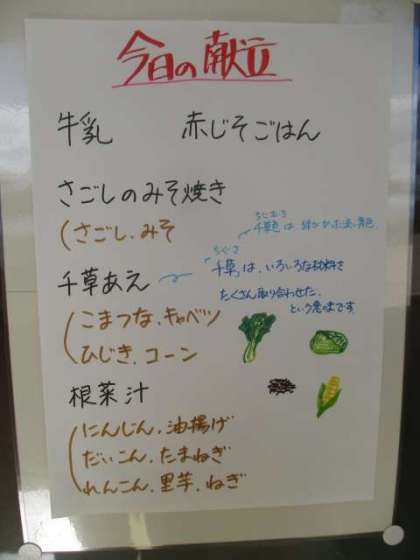 今日の献立
牛乳 赤じそごはん
さごしのみそ焼き
さごし、みそ
千草あえ
ちぐさ
千草は、いろいろな材料を
たくさん取り合わせた
という意味です
こまつな、キャベツ
ひじき、コーン
根菜汁
にんじん、油揚げ
だいこん、たまねぎ
れんこん、里芋、ねぎ